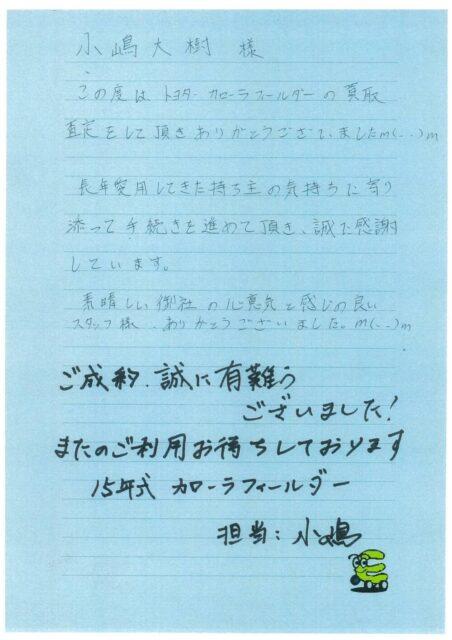 小嶋大樹 様
この度は トヨタ カローラフィールダーの買取
査定をして頂きありがとうございましたm(..)m
長年愛用してきた持ち主の気持ちに寄り
添って手続きを進めて頂き、誠に感謝
しています。
素晴しい御社の心意気と感じの良い
スタッフ様、ありがとうございました。m(..)m
ご成約、誠に有難う
ございました!
またのご利用お待ちしております
15年式 カローラフィールダー
担当:小嶋